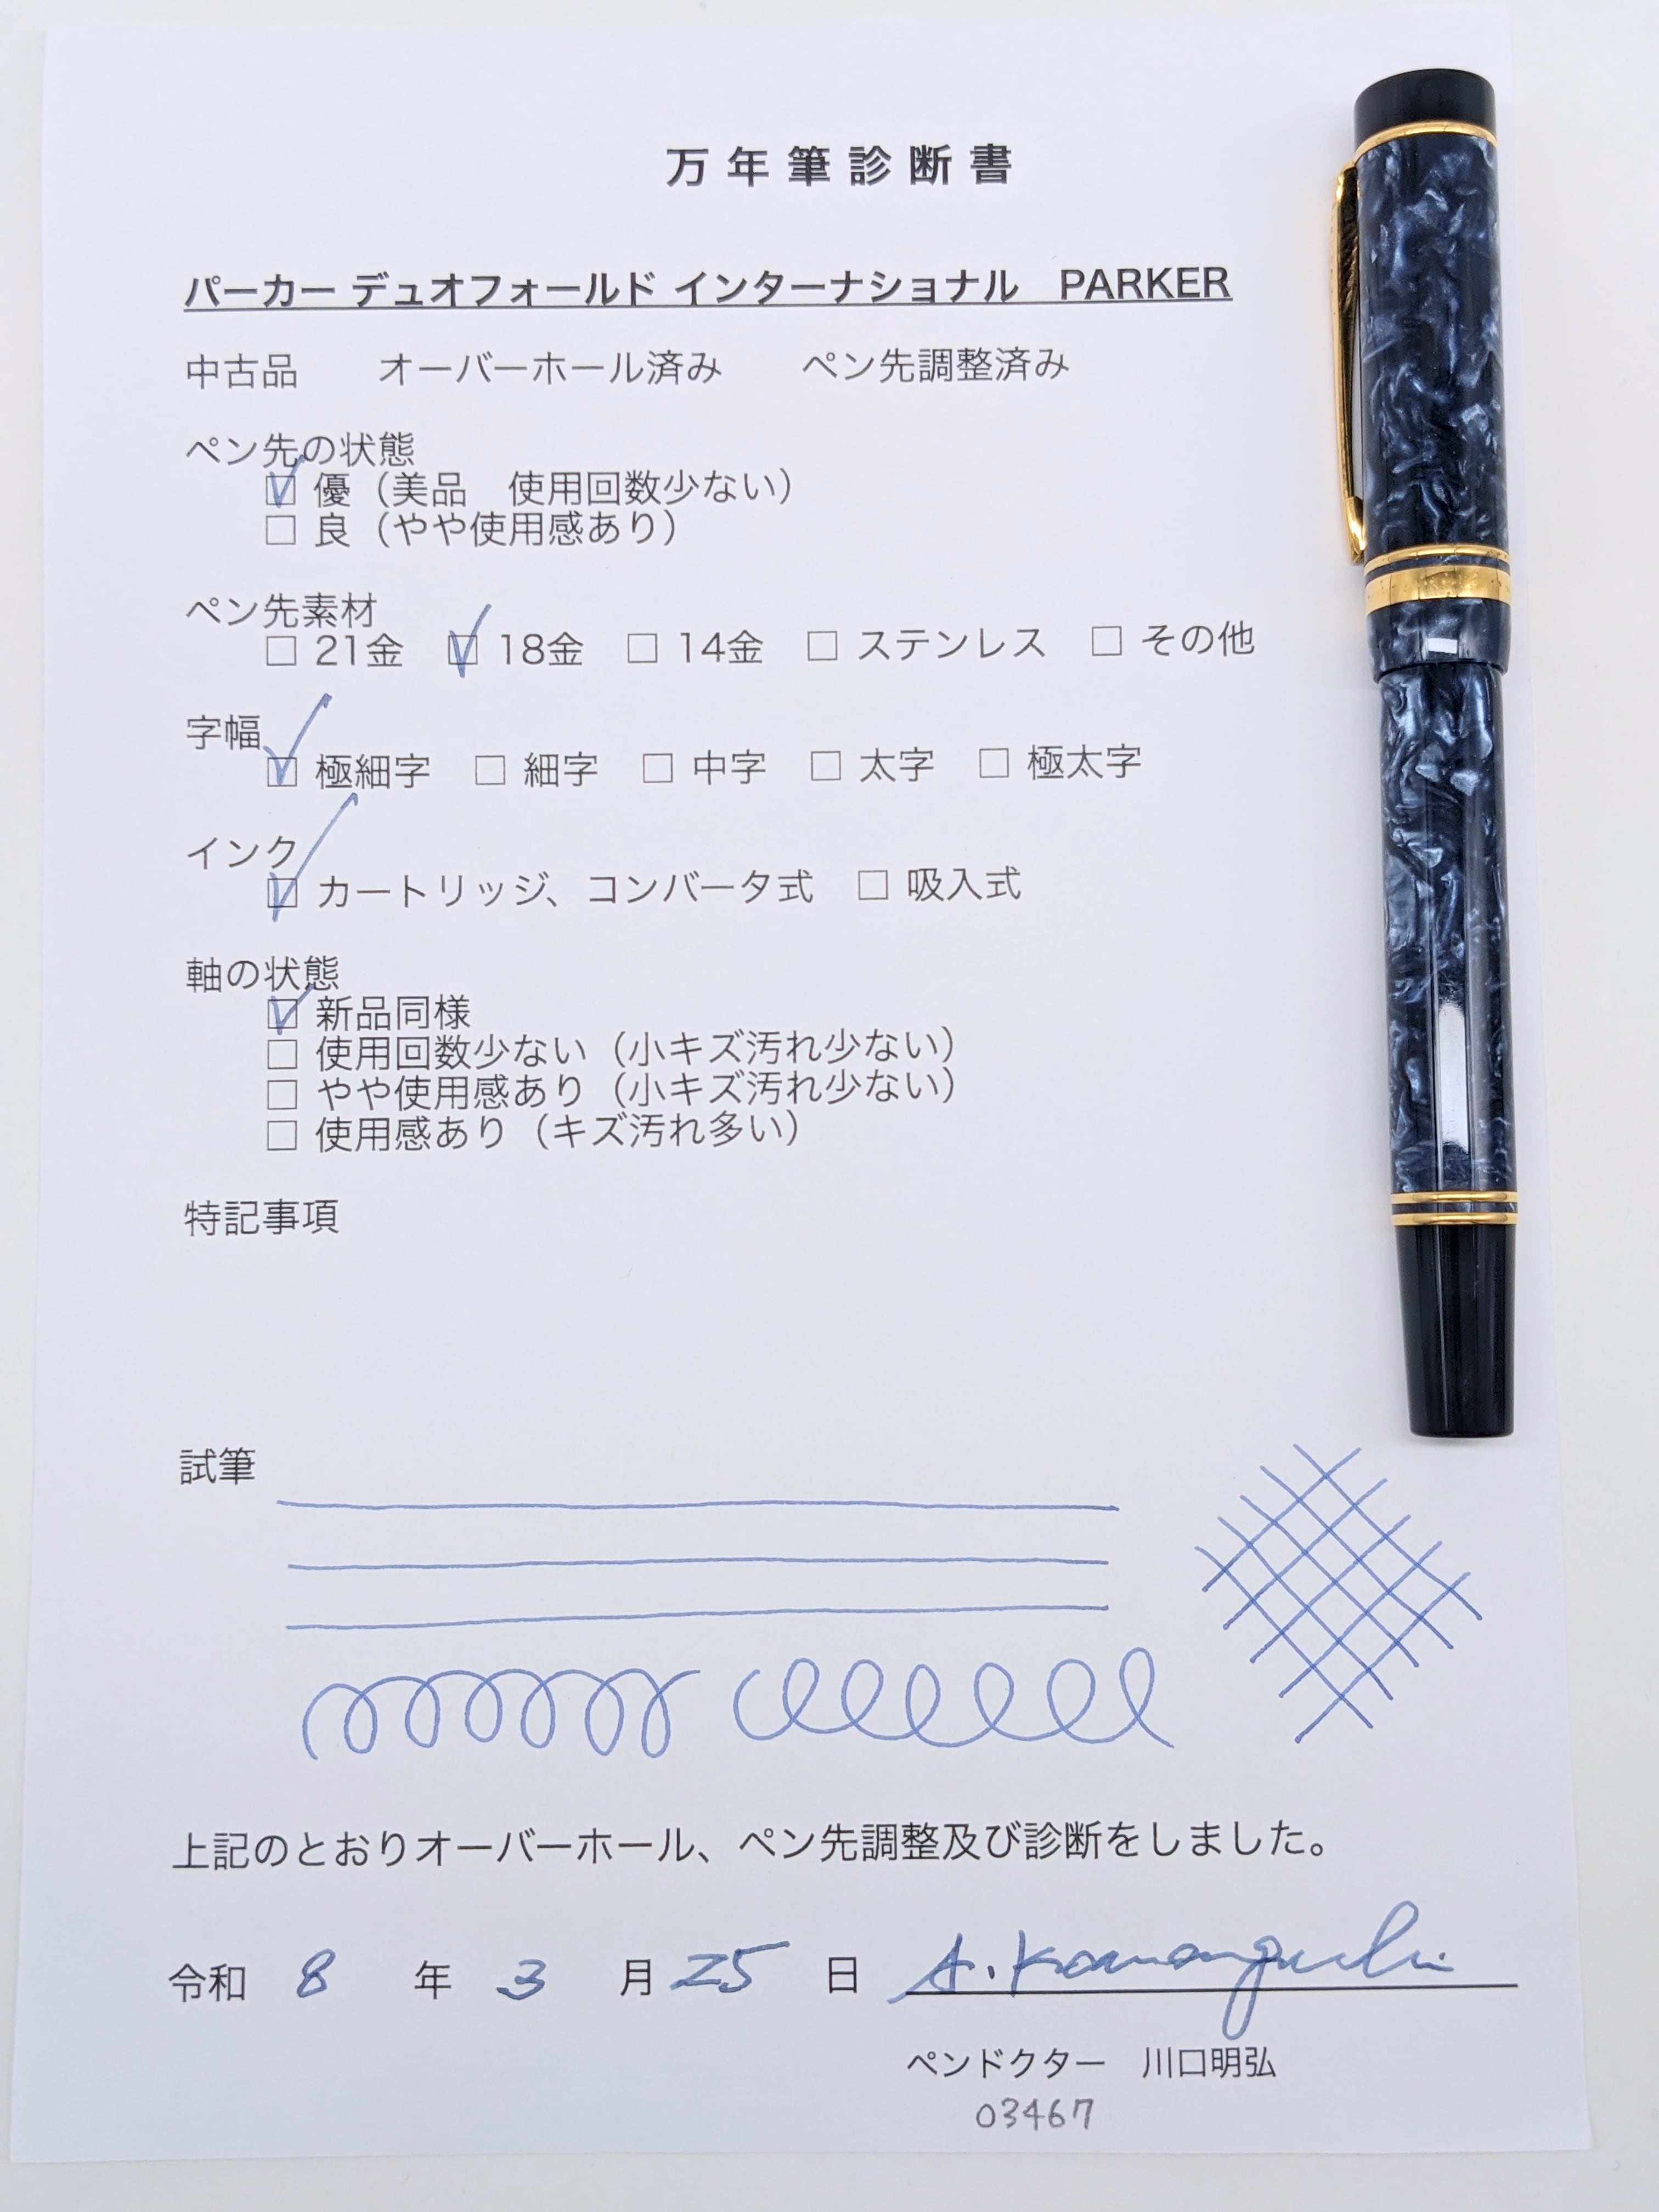 万年筆診断書
パーカー デュオフォールド インターナショナル　PARKER
中古品　　オーバーホール済み　　ペン先調整済み
ペン先の状態
☑ 優（美品　使用回数少ない）
☐ 良（やや使用感あり）
ペン先素材
☐ 21金　☑ 18金　☐ 14金　☐ ステンレス　☐ その他
字幅
☑ 極細字　☐ 細字　☐ 中字　☐ 太字　☐ 極太字
インク
☑ カートリッジ、コンバータ式　☐ 吸入式
軸の状態
☑ 新品同様
☐ 使用回数少ない（小キズ汚れ少ない）
☐ やや使用感あり（小キズ汚れ少ない）
☐ 使用感あり（キズ汚れ多い）
特記事項
試筆
上記のとおりオーバーホール、ペン先調整及び診断をしました。
令和　8　年　3　月　25　日　A. Kawaguchi
ペンドクター　川口明弘
03467